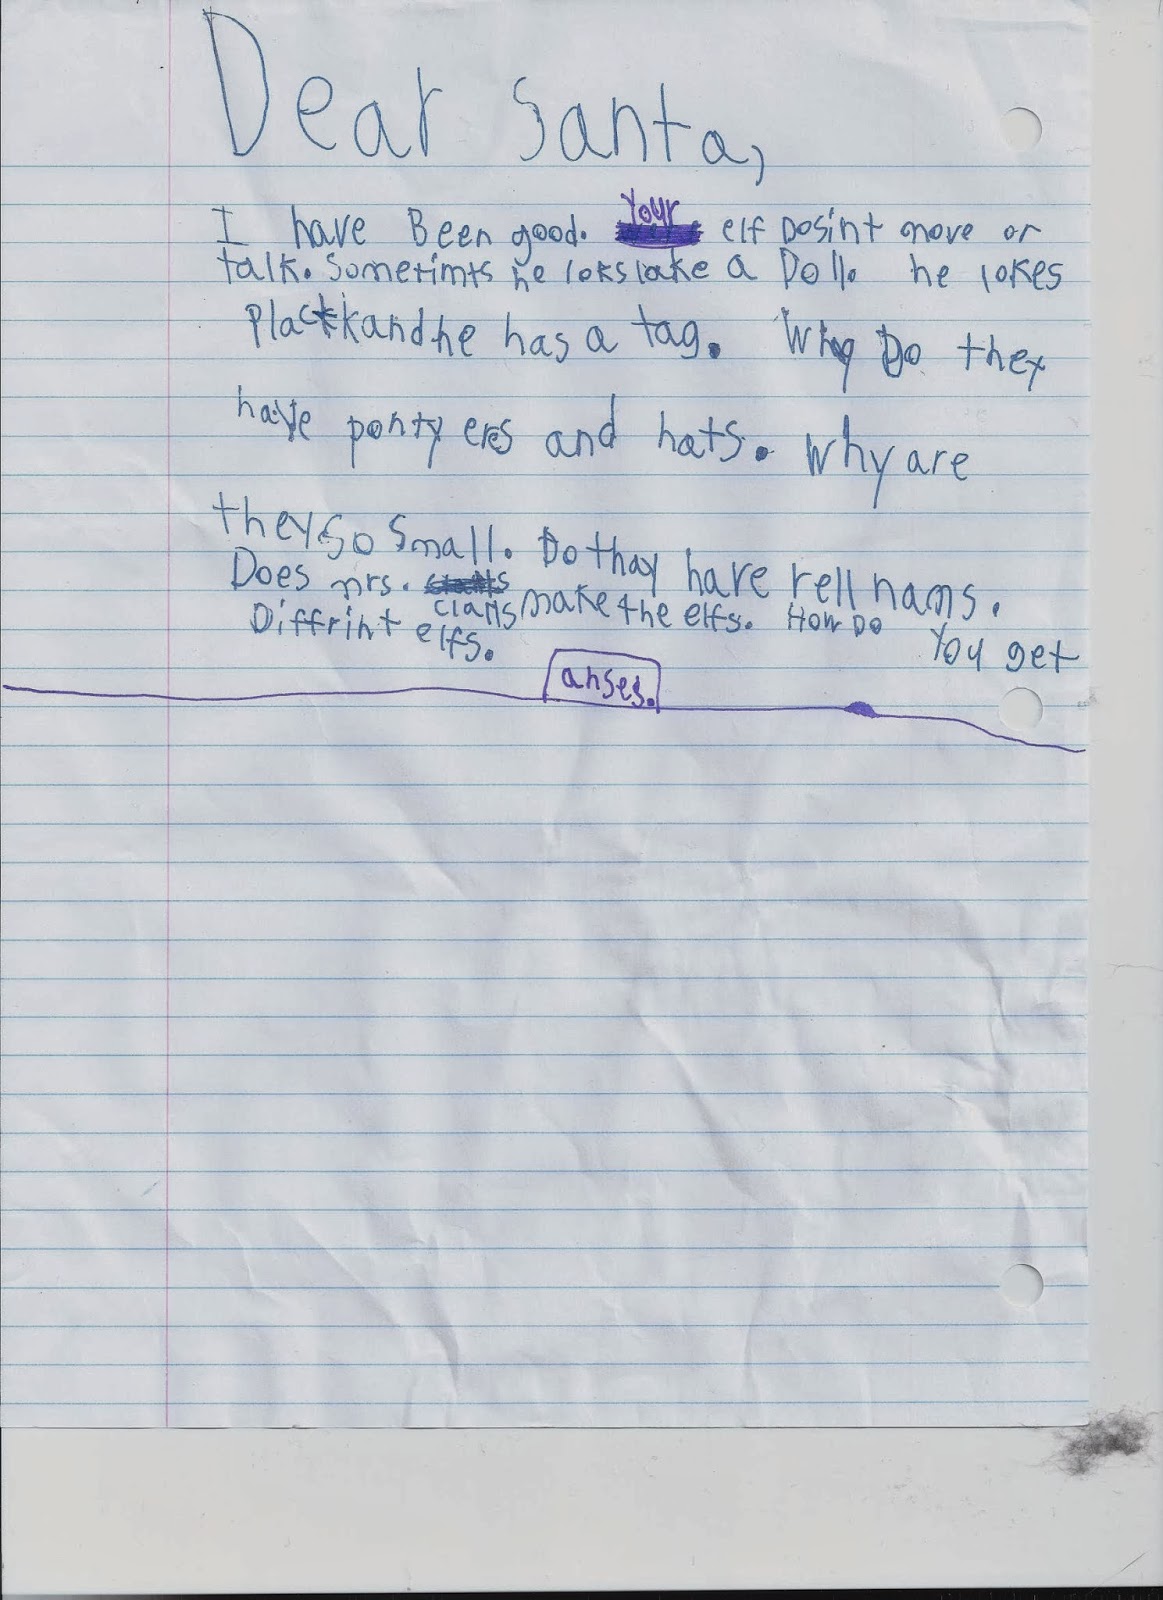 Dear Santa,
I have Been good. Your elf Dosint move or
talk. Sometimts he loks lake a Doll. he lokes
Plackk and he has a tag. Why Do they
have ponty eres and hats. Why are
they so small. Do thay have rell nams.
Does mrs. clails make the elfs. How Do You get
Diffrint elfs.
anses.